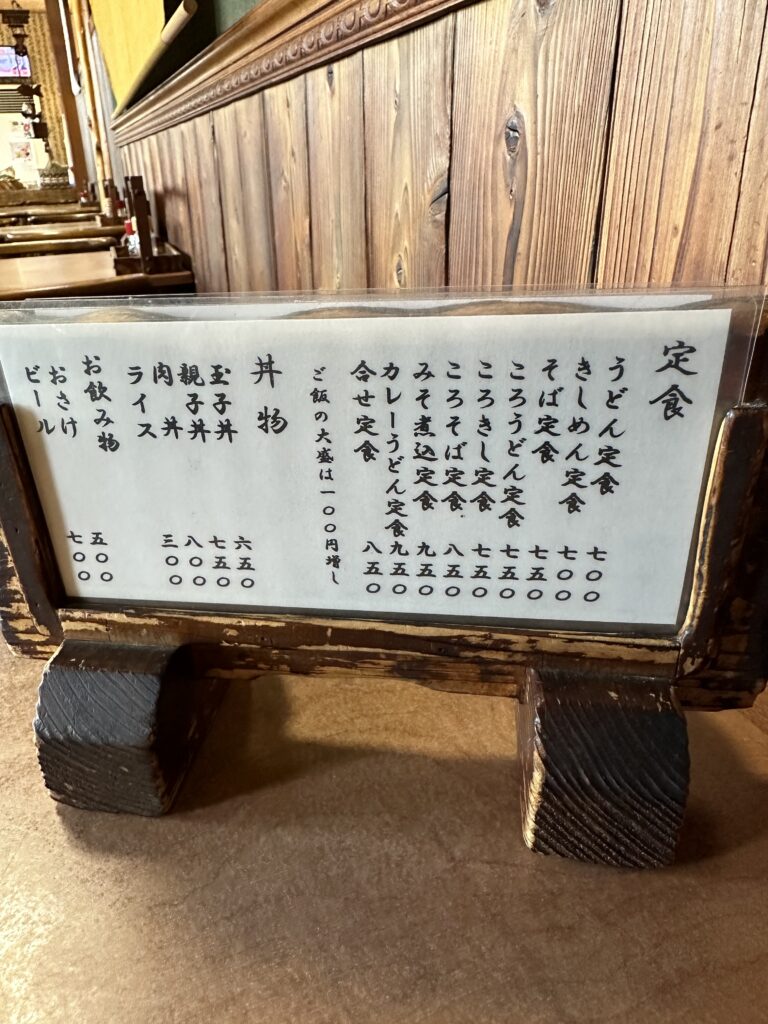 定食
うどん定食 七〇〇
きしめん定食 七〇〇
そば定食 七五〇
ころうどん定食 七五〇
ころきし定食 七五〇
ころそば定食 八五〇
みそ煮込定食 九五〇
カレーうどん定食 九五〇
合せ定食 八五〇
ご飯の大盛は一〇〇円増し
丼物
玉子丼 六五〇
親子丼 七五〇
肉丼 八〇〇
ライス 三〇〇
お飲み物
おさけ 五〇〇
ビール 七〇〇